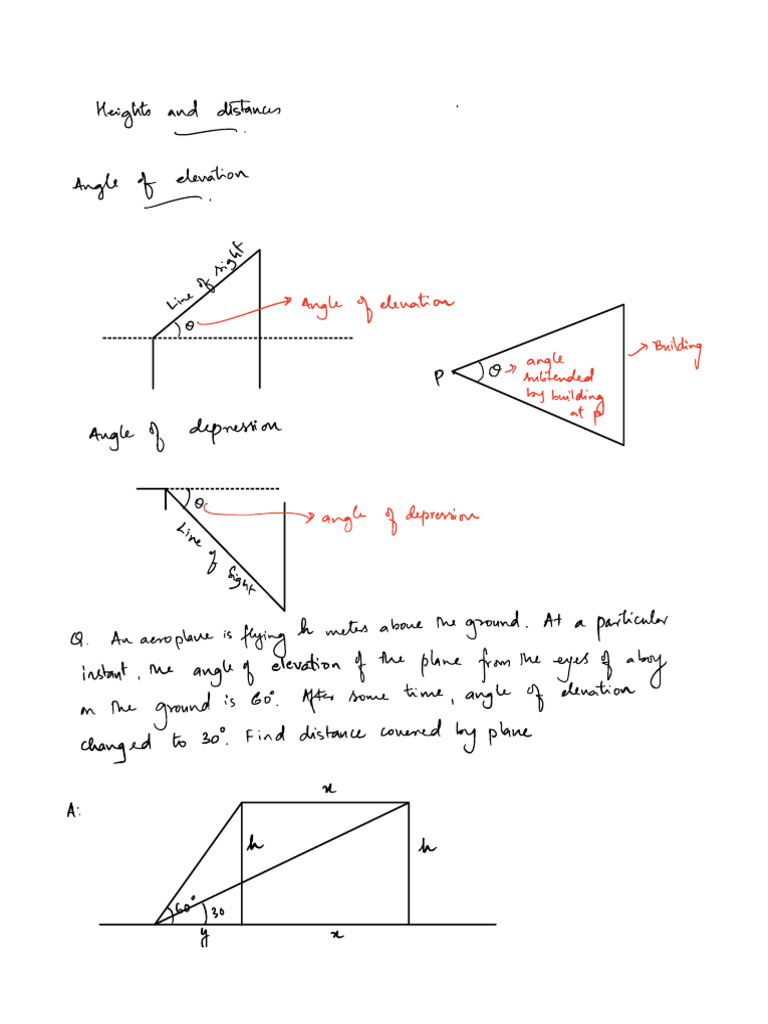 Heights and distances
Angle of elevation
Line of sight
θ
Angle of elevation
P
θ
angle
subtended
by building
at P
Building
Angle of depression
θ
angle of depression
Line of sight
Q. An aeroplane is flying h meters above the ground. At a particular
instant, the angle of elevation of the plane from the eyes of a boy
on the ground is 60°. After some time, angle of elevation
changed to 30°. Find distance covered by plane
A:
x
h
h
60°
30
y
x